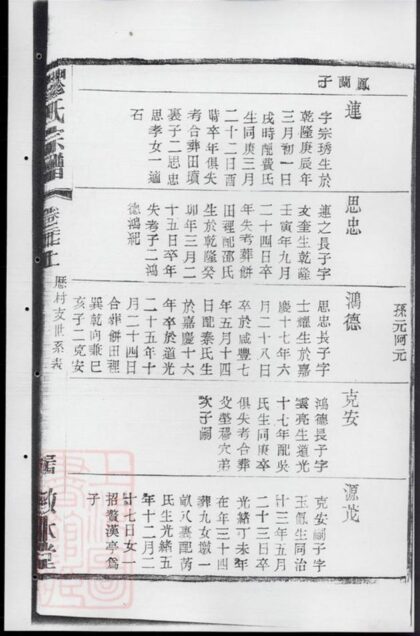 氏宗譜
歷村支世系表
鳳蘭子
蓮
字宗琇生於
乾隆庚辰年
三月初一日
戌時配費氏
生同庚三月
二十二日酉
時卒年俱失
考合葬田墳
裏子二思忠
思孝女一適
石
思忠
蓮之長子字
友奎生乾隆
壬寅年九月
二十四日卒
年失考葬餅
田裡配邵氏
生於乾隆癸
卯年三月二
十五日卒年
失考子二鴻
德鴻祀
孫元阿元
鴻德
思忠長子字
士耀生於嘉
慶十七年六
月二十八日
卒於咸豐七
年五月十四
日配秦氏生
於嘉慶十六
年卒於道光
二十五年十
月二十四日
合葬餅田裡
巽乾向兼巳
亥子二克安
克安
鴻德長子字
雲亮生道光
十七年配吳
氏生同庚卒
俱失考合葬
穴弟
次子嗣
源茂
克安嗣子字
玉 生同治
廿三年五月
二十三日卒
光緒丁未年
在年三十四
葬九女墩一
畝八裏配芮
氏生光緒五
年十二月二
廿七日女一
招贅漢亭爲
子
本堂